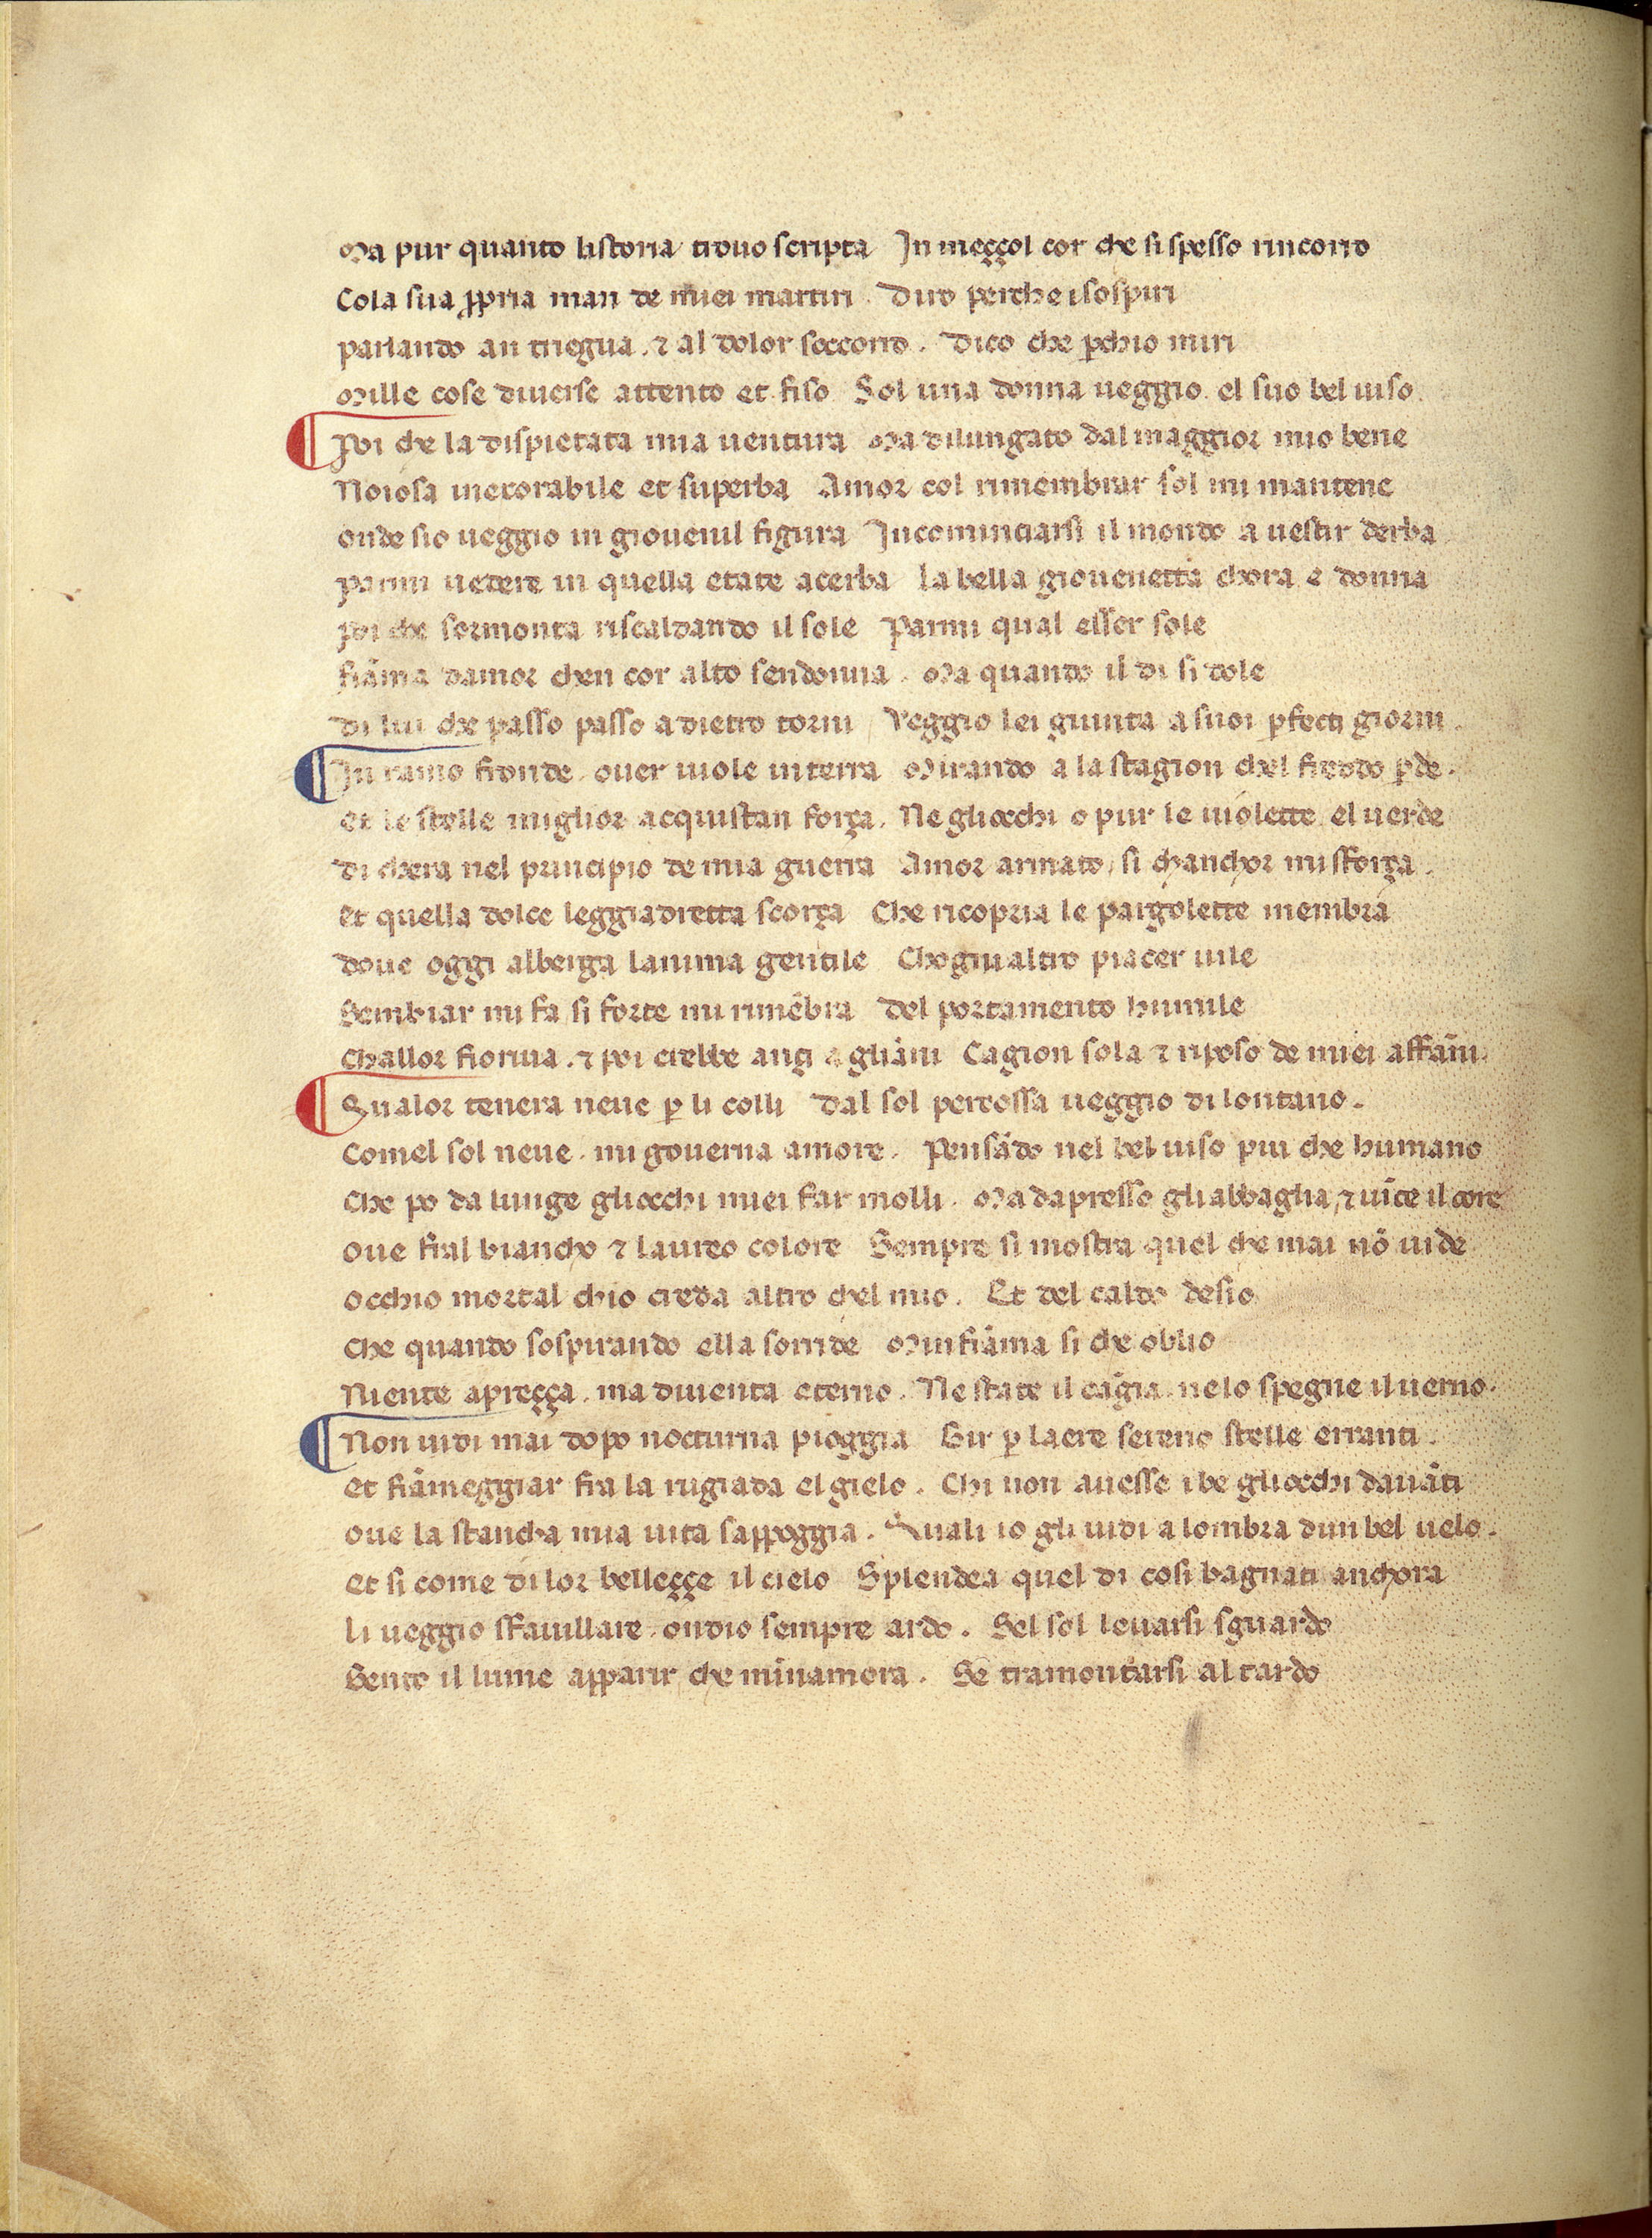 Ma pur quanto listoria trouo scripta In meççol cor che si spesso rincorro
Cola sua ꝓpria man de miei martiri . Diro perche i sospiri
parlando an triegua . ⁊ al dolor soccorro . Dico che ꝑchio miri
Mille cose diuerse attento et fiso Sol una donna ueggio . el suo bel uiso .
¶ Poi che la dispietata mia uentura Ma dilungato dal maggior mio bene
Noiosa inexorabile et superba Amor col rimembrar sol mi mantene
onde sio ueggio in giouenil figura Incominciarsi il mondo a uestir derba
parmi uedere in quella etate acerba la bella giouenetta chora e donna
poi che sormonta riscaldando il sole Parmi qual esser sole
fiãma damor chen cor alto sendonna . Ma quando il di si dole
di lui che passo passo a dietro torni / Veggio lei giunta a suoi ꝑfecti giorni .
¶ In ramo fronde . ouer uiole in terra Mirando a la stagion chel freddo ꝑde .
et le stelle miglior acquistan força . Ne gliocchi o pur le uiolette . el uerde
di chera nel principio de mia guerra Amor armato / si chanchor mi sforça .
et quella dolce leggiadretta scorça Che ricopria le pargolette membra
doue oggi alberga lanima gentile Chogni altro piacer uile
Sembiar mi fa / si forte mi rimẽbra del portamento humile
Challor fioriua . ⁊ poi crebbe ançi agliãni Cagion sola ⁊ riposo de miei affãni .
¶ Qualor tenera neue ꝑ li colli Dal sol percossa ueggio di lontano .
Comel sol neue . mi gouerna amore . Pensãdo nel bel uiso piu che humano
Che po da lunge gliocchi miei far molli . Ma dapresso gli abbaglia / ⁊ uĩce il core
oue fral biancho ⁊ laureo colore Sempre si mostra quel che mai nõ uide
occhio mortal chio creda altro chel mio . Et del caldo desio
Che quando sospirando ella sorride Minfiãma si che oblio
Niente apreçça . ma diuenta eterno . Ne state il cãgia . ne lo spegne il uerno .
¶ Non uidi mai dopo nocturna pioggia Gir ꝑ laere sereno stelle erranti .
et fiãmeggiar fra la rugiada el gielo . Chi non auesse i be gliocchi dauãti
oue la stancha mia uita sappoggia . Quali io gli uidi a lombra dun bel uelo .
et si come di lor belleççe il cielo Splendea quel di cosi bagnati anchora
li ueggio sfauillare . ondio sempre ardo . Sel sol leuarsi sguardo
Sento il lume apparir che minamora . Se tramontarsi al tardo